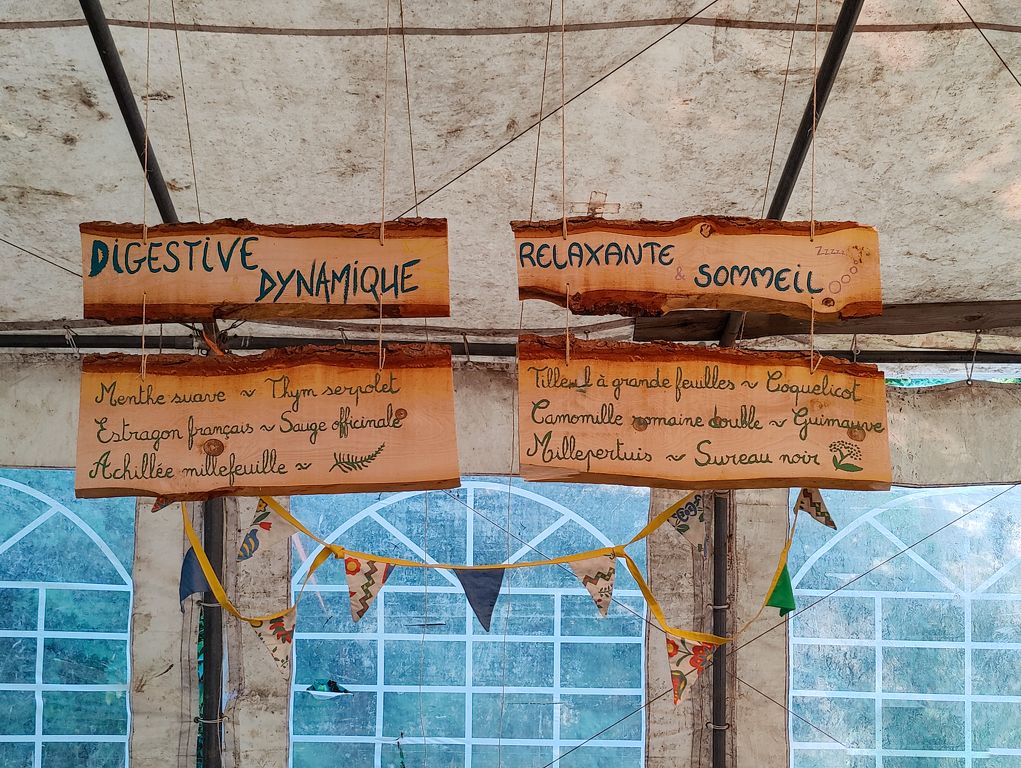 DIGESTIVE
DYNAMIQUE
Menthe suave ~ Thym serpolet
Estragon français ~ Sauge officinale
Achillée millefeuille ~
RELAXANTE
& SOMMEIL
Zzzzz
Tilleul à grande feuilles ~ Coquelicot
Camomille romaine double ~ Guimauve
Millepertuis ~ Sureau noir